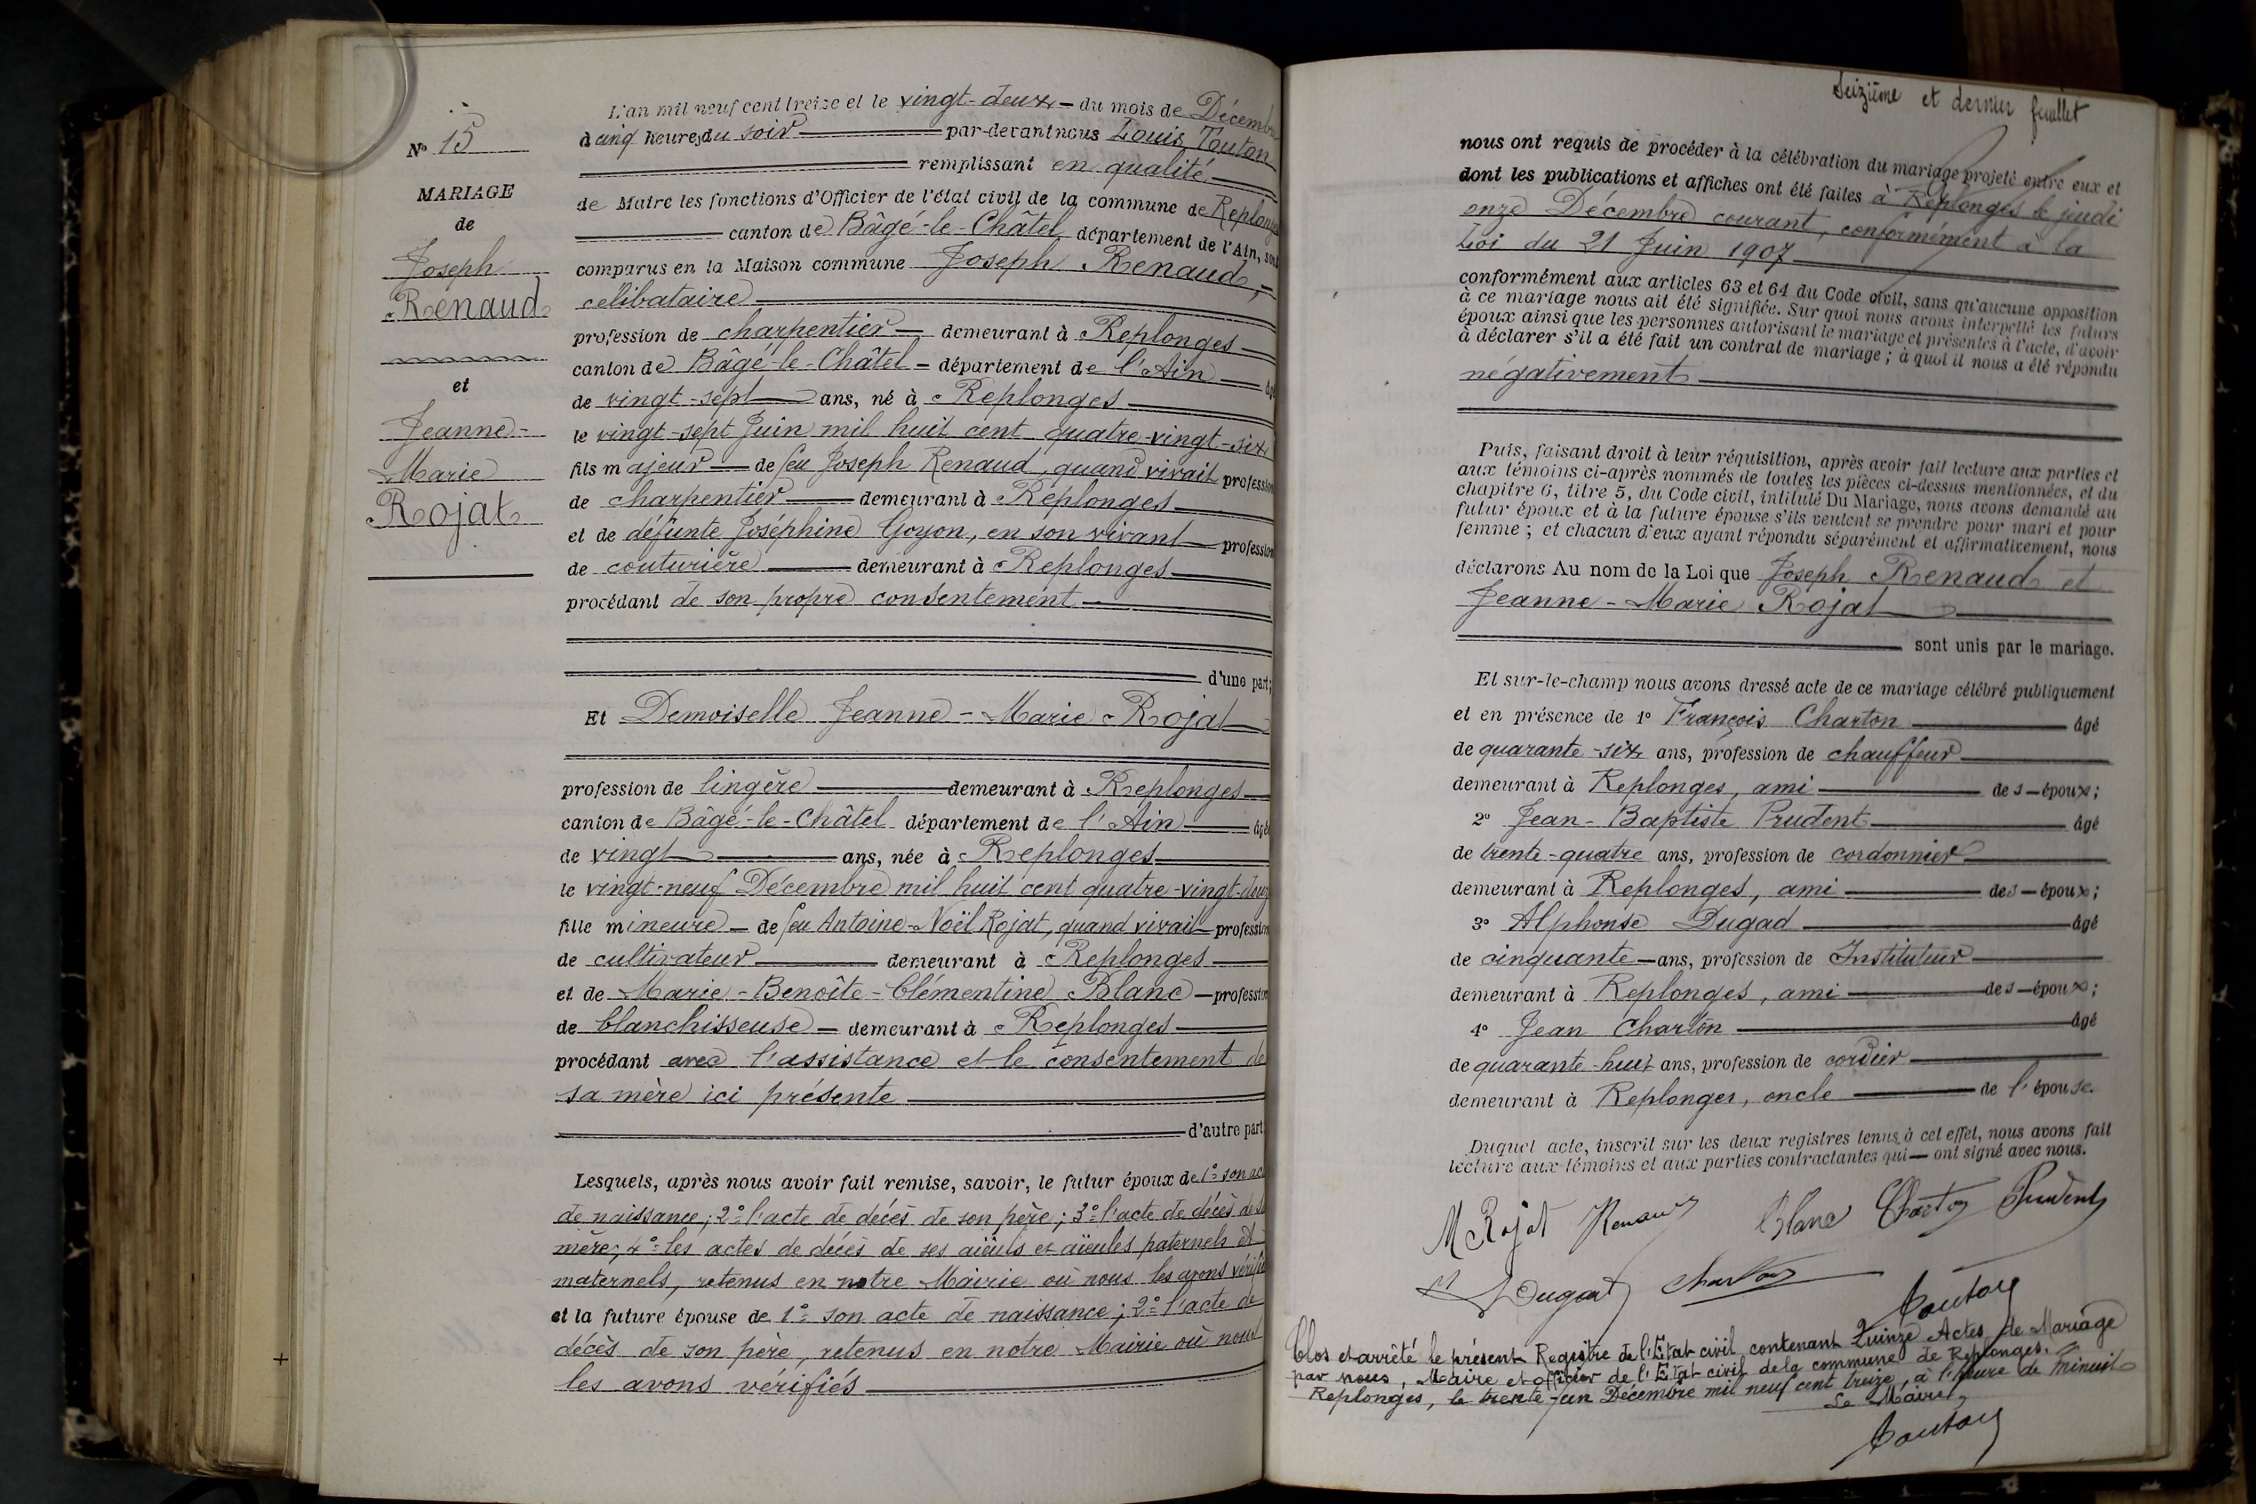 N° 15
MARIAGE
de
Joseph
Renaud
et
Jeanne-
Marie
Rojat
L'an mil neuf cent treize et le vingt-deux du mois de Décembre
à cinq heures du soir par-devant nous Louis Touton
remplissant en qualité
de Maire les fonctions d'Officier de l'état civil de la commune de Replonges
canton de Bâgé-le-Châtel département de l'Ain, sont
comparus en la Maison commune Joseph Renaud,
célibataire
profession de charpentier demeurant à Replonges
canton de Bâgé-le-Châtel département de l'Ain âgé
de vingt-sept ans, né à Replonges
le vingt-sept Juin mil huit cent quatre-vingt-six
fils majeur de feu Joseph Renaud, quand vivait profession
de charpentier demeurant à Replonges
et de défunte Joséphine Goyon, en son vivant profession
de couturière demeurant à Replonges
procédant de son propre consentement
d'une part;
Et Demoiselle Jeanne-Marie Rojat
profession de lingère demeurant à Replonges
canton de Bâgé-le-Châtel département de l'Ain âgée
de vingt ans, née à Replonges
le vingt-neuf Décembre mil huit cent quatre-vingt-douze
fille mineure de feu Antoine-Noël Rojat, quand vivait profession
de cultivateur demeurant à Replonges
et de Marie-Benoîte-Clémentine Blanc profession
de blanchisseuse demeurant à Replonges
procédant avec l'assistance et le consentement de
sa mère ici présente
d'autre part
Lesquels, après nous avoir fait remise, savoir, le futur époux de 1° son acte
de naissance; 2° l'acte de décès de son père; 3° l'acte de décès de sa
mère; 4° les actes de décès de ses aïeuls et aïeules paternels et
maternels, retenus en notre Mairie où nous les avons vérifiés
et la future épouse de 1° son acte de naissance; 2° l'acte de
décès de son père, retenus en notre Mairie où nous
les avons vérifiés
Seizième et dernier feuillet
nous ont requis de procéder à la célébration du mariage projeté entre eux et
dont les publications et affiches ont été faites à Replonges le jeudi
onze Décembre courant, conformément à la
Loi du 21 Juin 1907
conformément aux articles 63 et 64 du Code civil, sans qu'aucune opposition
à ce mariage nous ait été signifiée. Sur quoi nous avons interpellé les futurs
époux ainsi que les personnes autorisant le mariage et présentes à l'acte, d'avoir
à déclarer s'il a été fait un contrat de mariage; à quoi il nous a été répondu
négativement
Puis, faisant droit à leur réquisition, après avoir fait lecture aux parties et
aux témoins ci-après nommés de toutes les pièces ci-dessus mentionnées, et du
chapitre 6, titre 5, du Code civil, intitulé Du Mariage, nous avons demandé au
futur époux et à la future épouse s'ils veulent se prendre pour mari et pour
femme; et chacun d'eux ayant répondu séparément et affirmativement, nous
déclarons Au nom de la Loi que Joseph Renaud et
Jeanne-Marie Rojat
sont unis par le mariage.
Et sur-le-champ nous avons dressé acte de ce mariage célébré publiquement
et en présence de 1° François Charton âgé
de quarante-six ans, profession de chauffeur
demeurant à Replonges, ami des époux;
2° Jean-Baptiste Prudent âgé
de trente-quatre ans, profession de cordonnier
demeurant à Replonges, ami des époux;
3° Alphonse Dugad âgé
de cinquante ans, profession de Instituteur
demeurant à Replonges, ami des époux;
4° Jean Charton âgé
de quarante-huit ans, profession de cordier
demeurant à Replonges, oncle de l'épouse.
Duquel acte, inscrit sur les deux registres tenus à cet effet, nous avons fait
lecture aux témoins et aux parties contractantes qui ont signé avec nous.
M Rojat Renaud Blanc Charton Prudent
Dugad Charton
Touton
Clos et arrêté le présent Registre de l'État civil contenant Quinze Actes de Mariage
par nous, Maire et officier de l'État civil de la commune de Replonges.
Replonges, le trente-un Décembre mil neuf cent treize, à l'heure de minuit
Le Maire,
Touton